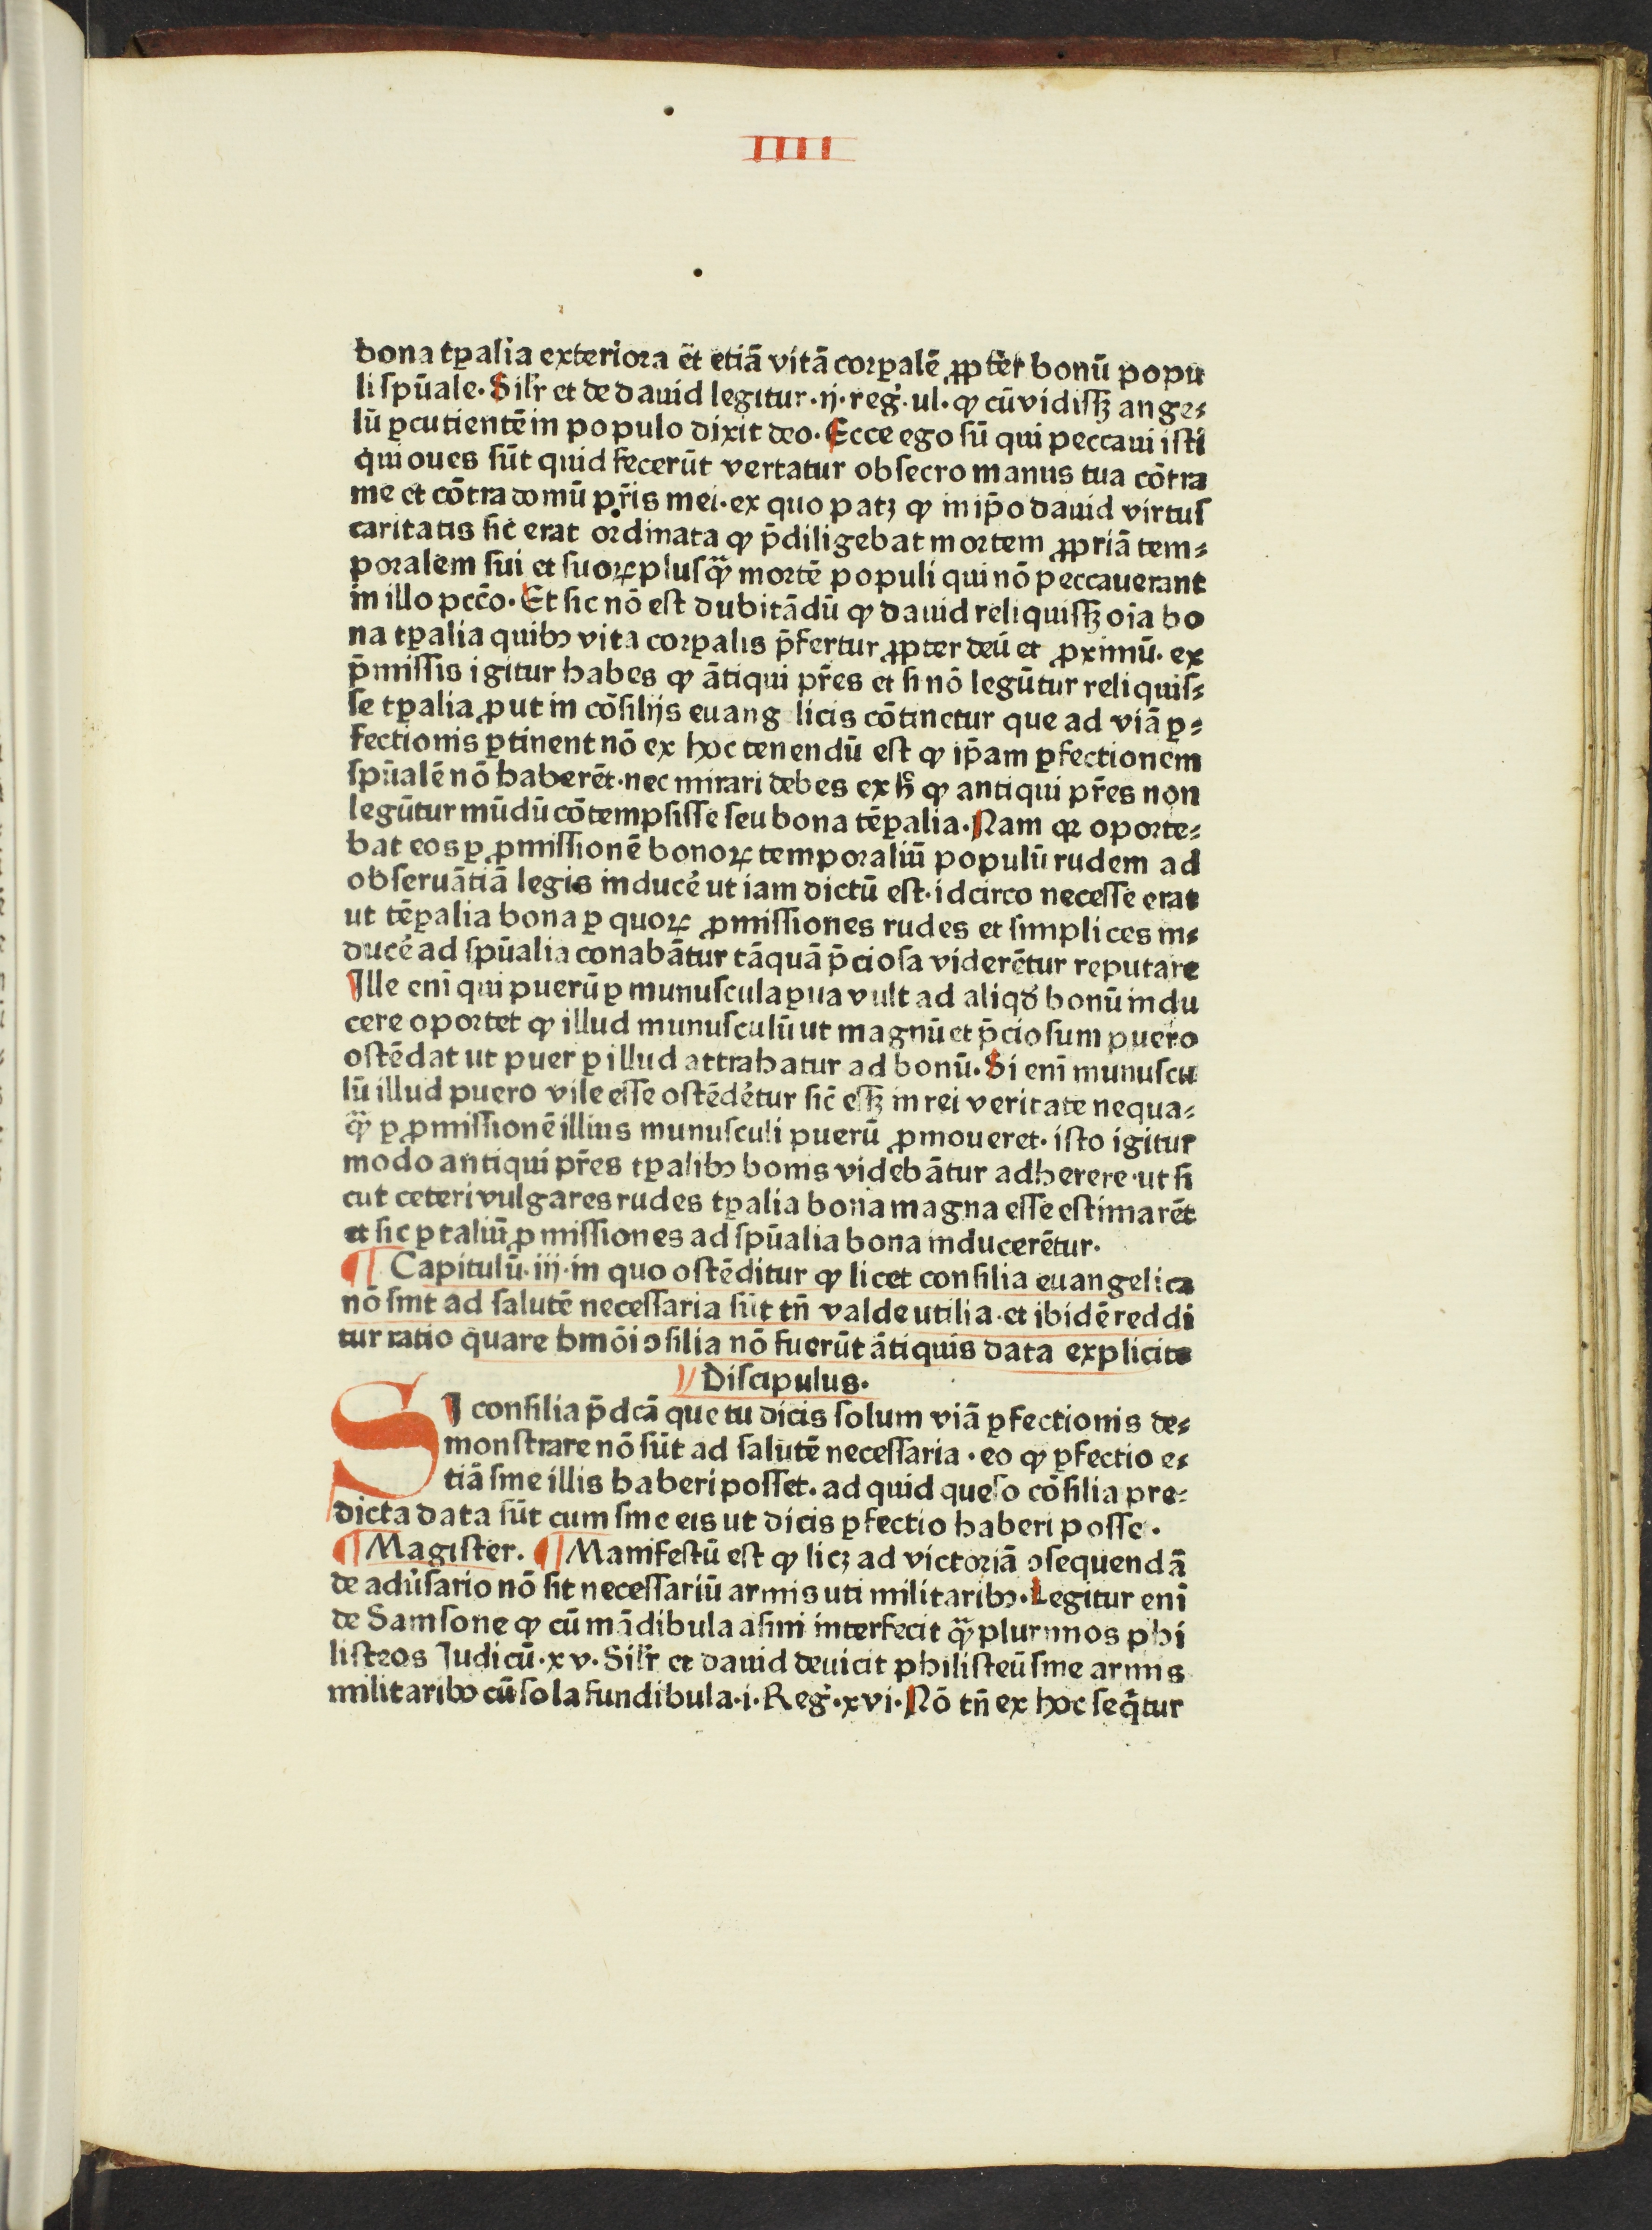 IIII
bona tꝑalia exteriora et̄ etiā vitā corꝑalē ꝓpter bonū popu
li spūale. Silr̄ et de dauid legitur .ij. reg̉. ul. ꝙ cū vidissꝫ ange⸗
lū ꝑcutientē in populo dixit deo. Ecce ego sū qui peccaui isti
qui oues sūt quid fecerūt vertatur obsecro manus tua cōtra
me et cōtra domū pr̄is mei. ex quo patꝫ ꝙ in ip̄o dauid virtus
caritatis sic̄ erat ordinata ꝙ p̄diligebat mortem ꝓpriā tem⸗
poralem sui et suoꝝ plusꝙ̄ mortē populi qui nō peccauerant
in illo pcc̄o. Et sic nō est dubitādū ꝙ dauid reliquissꝫ oīa bo
na tꝑalia quibꝰ vita corꝑalis p̄fertur ꝓpter deū et ꝓximū. ex
p̄missis igitur habes ꝙ ātiqui pr̄es et si nō legūtur reliquis⸗
se tꝑalia ꝓut in cōsilijs euang licis cōtinetur que ad viā ꝑ⸗
fectionis ꝑtinent nō ex hoc tenendū est ꝙ ip̄am ꝑfectionem
spūalē nō haberēt. nec mirari debes ex hͦ ꝙ antiqui pr̄es non
legūtur mūdū cōtempsisse seu bona tēꝑalia. Nam qꝛ oporte⸗
bat eos ꝑ ꝓmissionē bonoꝝ temporaliū populū rudem ad
obseruātiā legis induce᷑ ut iam dictū est. idcirco necesse erat
ut tēꝑalia bona ꝑ quoꝝ ꝓmissiones rudes et simplices in⸗
duce᷑ ad spūalia conabātur tāquā p̄ciosa viderētur reputare
Ille enī qui puerū ꝑ munuscula ꝑua vult ad aliqd̉ bonū indu
cere oportet ꝙ illud munusculū ut magnū et p̄ciosum puero
ostēdat ut puer ꝑ illud attrahatur ad bonū. Si enī munuscu
lū illud puero vile esse ostēde᷑tur sic̄ essꝫ in rei veritate nequa⸗
ꝙ̄ ꝑ ꝓmissionē illius munusculi puerū ꝓmoueret. isto igitur
modo antiqui pr̄es tꝑalibꝰ bonis videbātur adherere. ut si
cut ceteri vulgares rudes tꝑalia bona magna esse estimarēt
et sic ꝑ taliū ꝓmissiones ad spūalia bona inducerētur.
¶ Capitulū .iij. in quo ostēditur ꝙ licet consilia euangelica
nō sint ad salutē necessaria sūt tn̄ valde utilia. et ibidē reddi
tur ratio quare hmōi ꝯsilia nō fuerūt ātiquis data explicite
Discipulus.
SI consilia p̄dcā que tu dicis solum viā ꝑfectionis de⸗
monstrare nō sūt ad salutē necessaria. eo ꝙ ꝑfectio e⸗
tiā sine illis haberi posset. ad quid queso cōsilia pre⸗
dicta data sūt cum sine eis ut dicis ꝑfectio haberi posse.
¶ Magister. ¶ Manifestū est ꝙ licꝫ ad victoriā ꝯsequendā
de adu̓sario nō sit necessariū armis uti militaribꝰ. Legitur enī
de Samsone ꝙ cū mādibula asini interfecit ꝙ̄plurimos phi
listeos Judicū. xv. Silr̄ et dauid deuicit philisteū sine armis
militaribꝰ cū sola fundibula. i. Reg̉. xvi. Nō tn̄ ex hoc seq̄tur